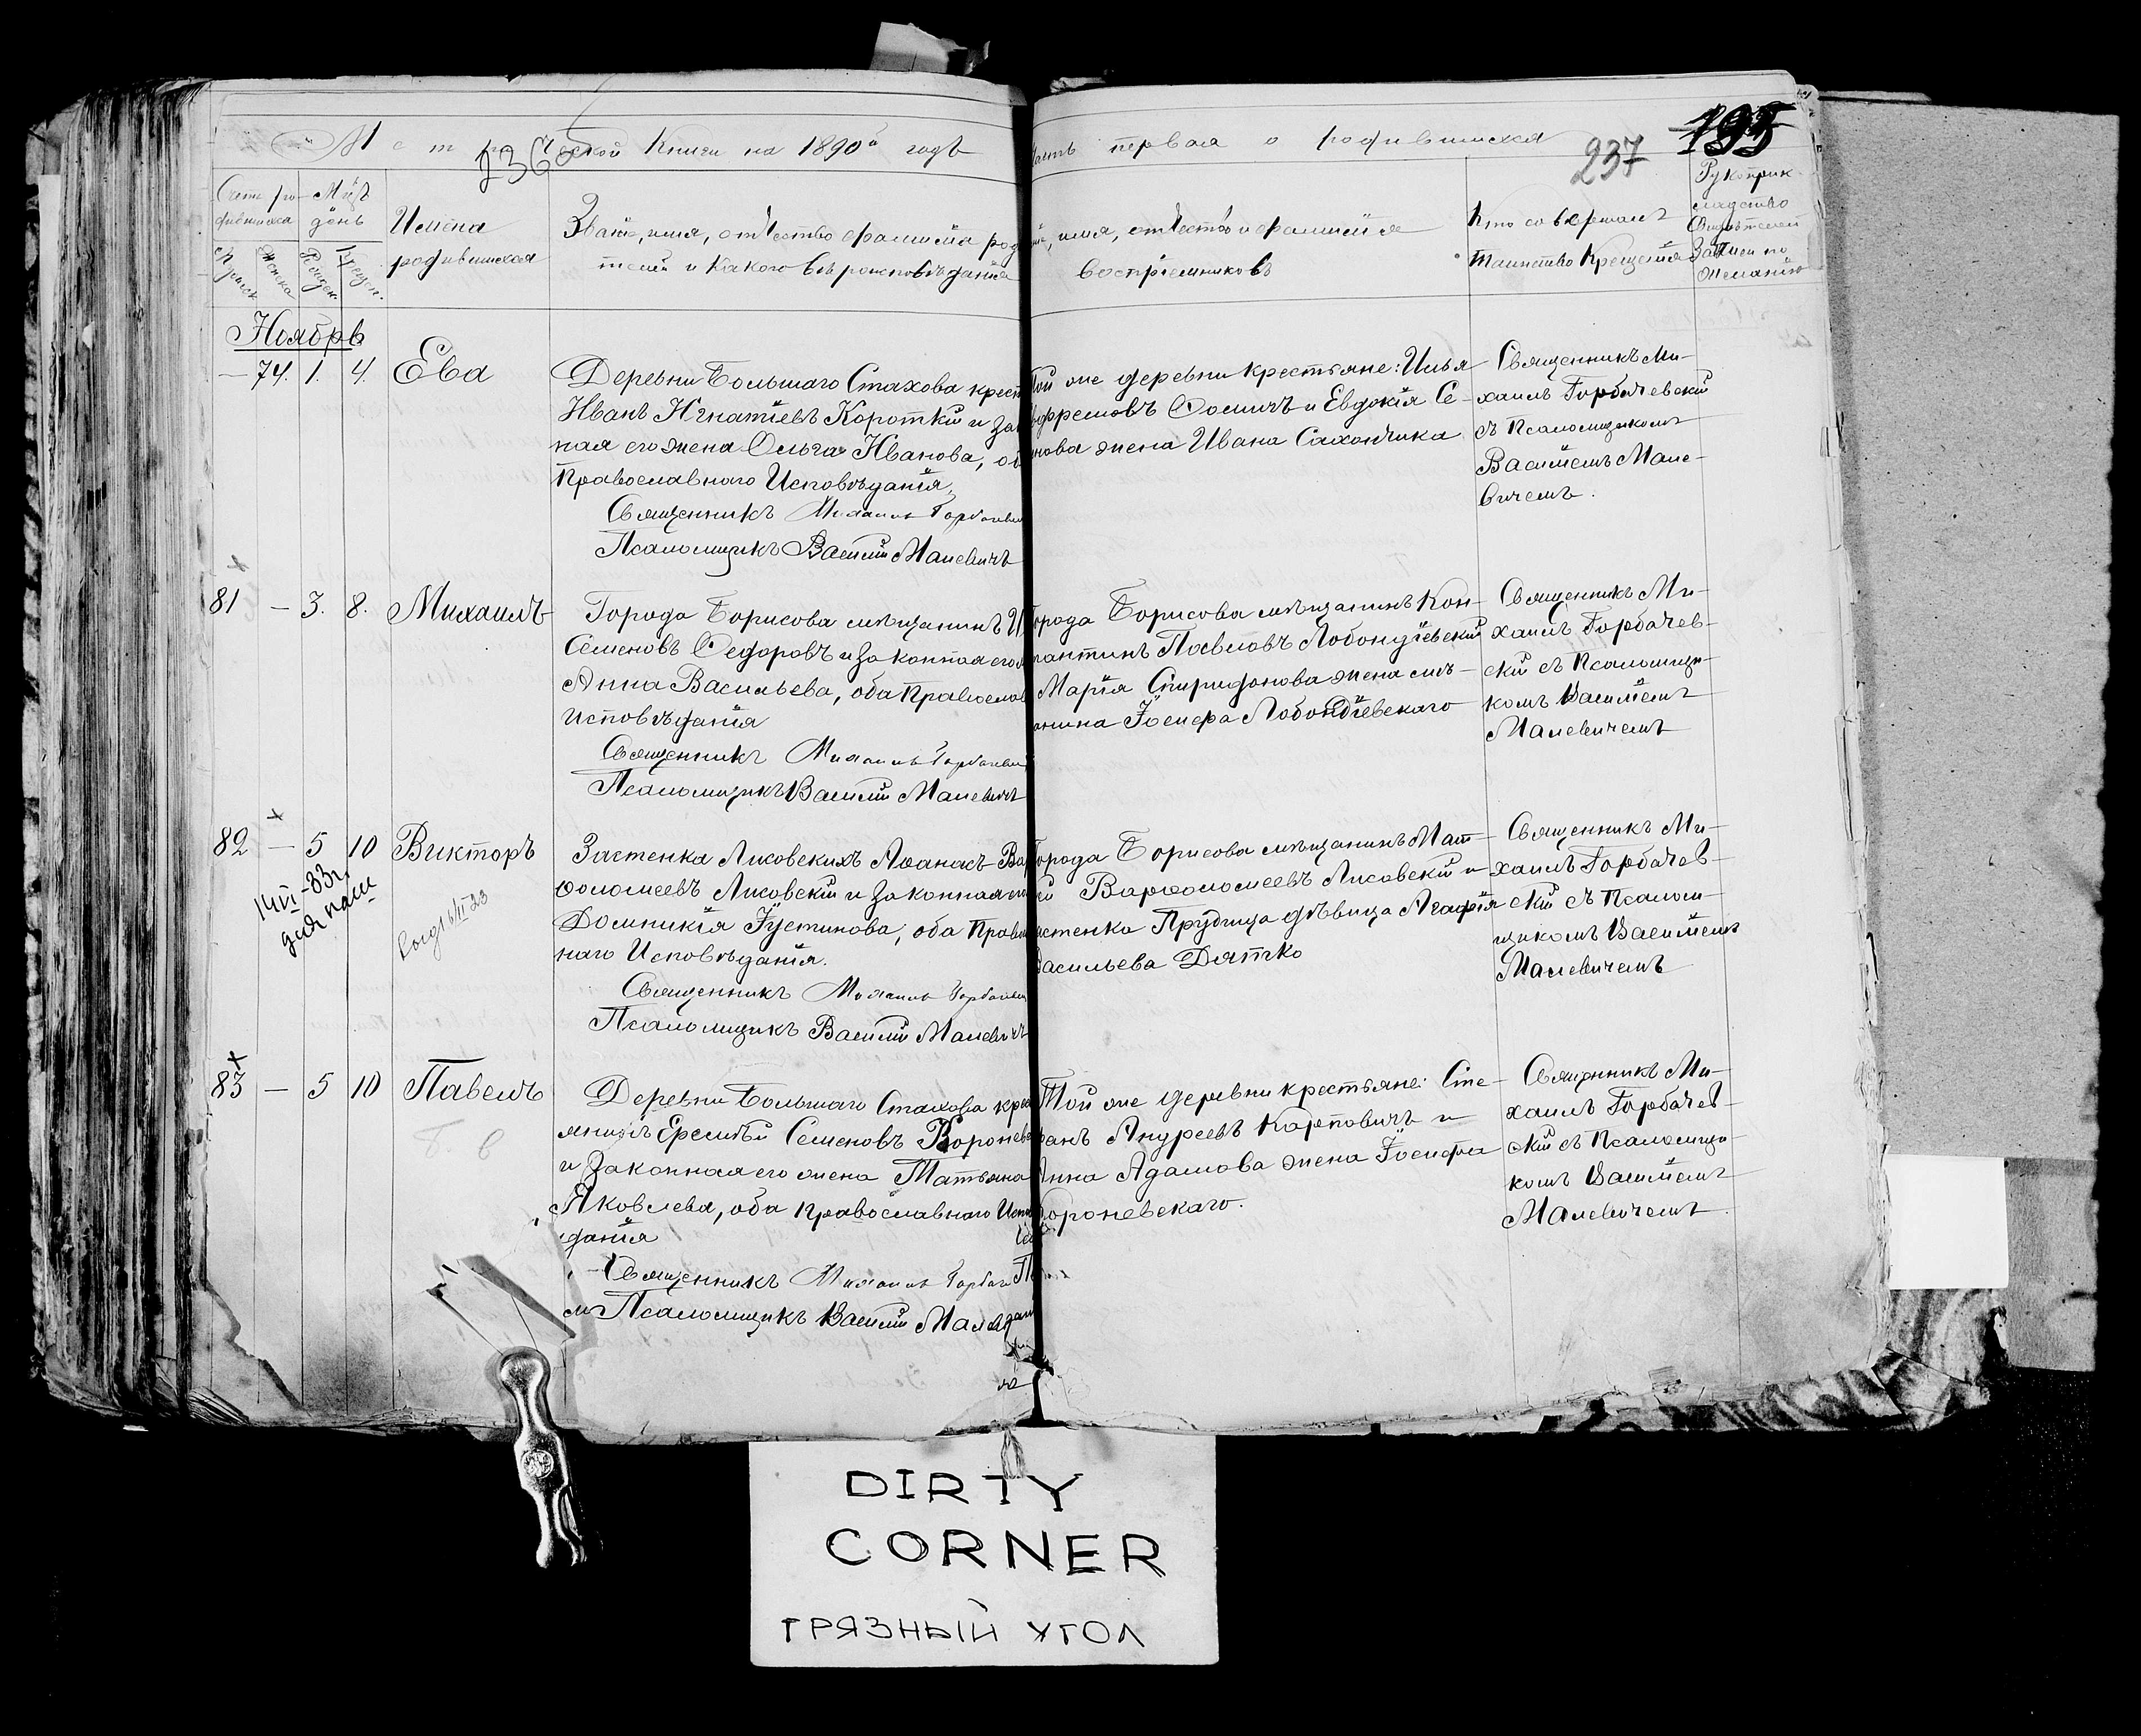 Метрической Книги на 1890й годъ
236
Часть первая о родившихся
237
195
Счетъ родившихся
Мѣсц. день
Мужеск
Женска
Рожден.
Крещен.
Имена
родившихся
Званіе, имя, отчество и фамилія роди-
телей и какого вѣроисповѣданія
имя, отчество и фамилія
воспріемниковъ
Кто совершалъ
таинство Крещенія
Рукоприк-
ладство
Свидѣтелей
записи по
желанію
Ноябрь
— 74. 1. 4. Ева
Деревни Большаго Стахова крест
Иванъ Игнатіевъ Короткій и зак
ная его жена Ольга Иванова, об
Православнаго Исповѣданія,
Священникъ Михаилъ Горбачевскі
Псаломщикъ Василій Малевичъ
Той же деревни крестьяне: Илья
Ефремовъ Фомичъ и Евдокія Се-
нова жена Ивана Сахончика
Священникъ Ми-
хаилъ Горбачевскій
съ Псаломщикомъ
Василіемъ Мале-
вичемъ.
81 — 3. 8. Михаилъ
Города Борисова мѣщанинъ И
Семеновъ Федоровъ и законная его
Анна Васильева, оба Православ
Исповѣданія
Священникъ Михаилъ Горбачевскі
Псаломщикъ Василій Малевичъ
города Борисова мѣщанинъ Кон-
стантинъ Павловъ Лобондіевскій
Марія Спиридонова жена мѣ-
анина Іосифа Лобондіевскаго
Священникъ Ми-
хаилъ Горбачев-
скій съ Псаломщи-
комъ Василіемъ
Малевичемъ
82 — 5 10 Викторъ
14 VI -33 г.
для пасп
выд 16/II 23
Застенка Лисовскихъ Аѳанасъ Вар
ѳоломеевъ Лисовскій и законная его
Домникія Іустинова, оба Правос
наго Исповѣданія.
Священникъ Михаилъ Горбачевск
Псаломщикъ Василій Малевичъ
города Борисова мѣщанинъ Мат-
ѳей Варѳоломеевъ Лисовскій и
застенка Прудища дѣвица Агафія
Васильева Дятко
Священникъ Ми-
хаилъ Горбачев-
скій съ Псалом-
щикомъ Василіемъ
Малевичемъ
83 — 5 10 Павелъ
Деревни Большаго Стахова крес
янинъ Еремѣй Семеновъ Вороневс
и законная его жена Татьяна
Яковлева, оба православнаго Испов
данія
Священникъ Михаилъ Горбач
Псаломщикъ Василій Мале
Той же деревни крестьяне: Сте-
фанъ Андреевъ Карповичъ и
Анна Адамова жена Іосифа
Вороневскаго.
Священникъ Ми-
хаилъ Горбачев-
скій съ Псаломщи-
комъ Василіемъ
Малевичемъ.
DIRTY
CORNER
ГРЯЗНЫЙ УГОЛ